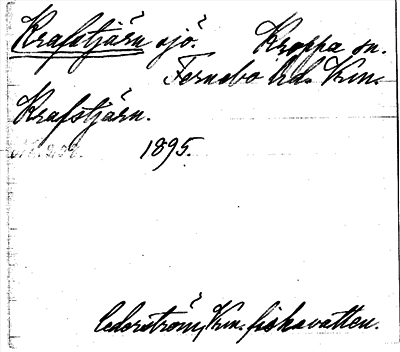 Krafstjärn sjö. Kroppa sn.
Fernebo hd. Krm.
Krafstjärn.
1895.
Cederström, Krm. fiskevatten.